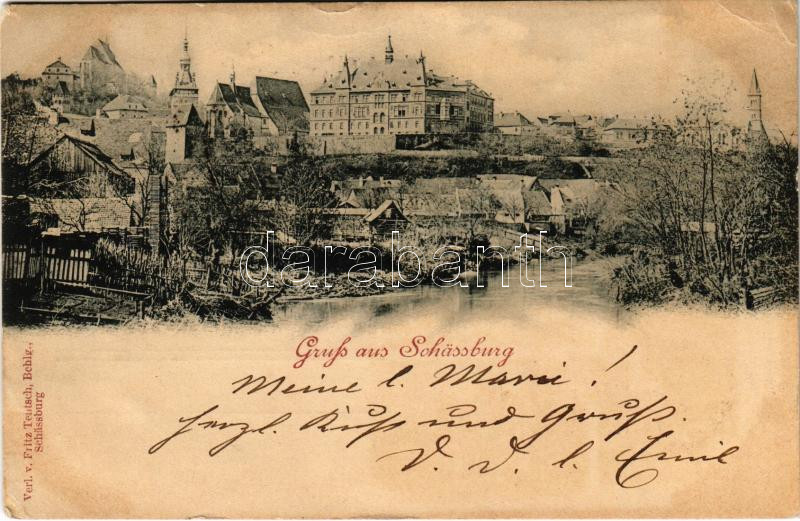 darabanth
Gruß aus Schässburg
Meine l. Marie!
herzl. Kuß und Gruß.
D. d. l. Emil
Verl. v. Fritz Teutsch, Behlg.,
Schässburg